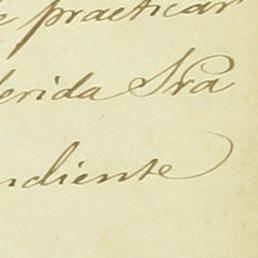 e practicar
ferida Sra
ndiente